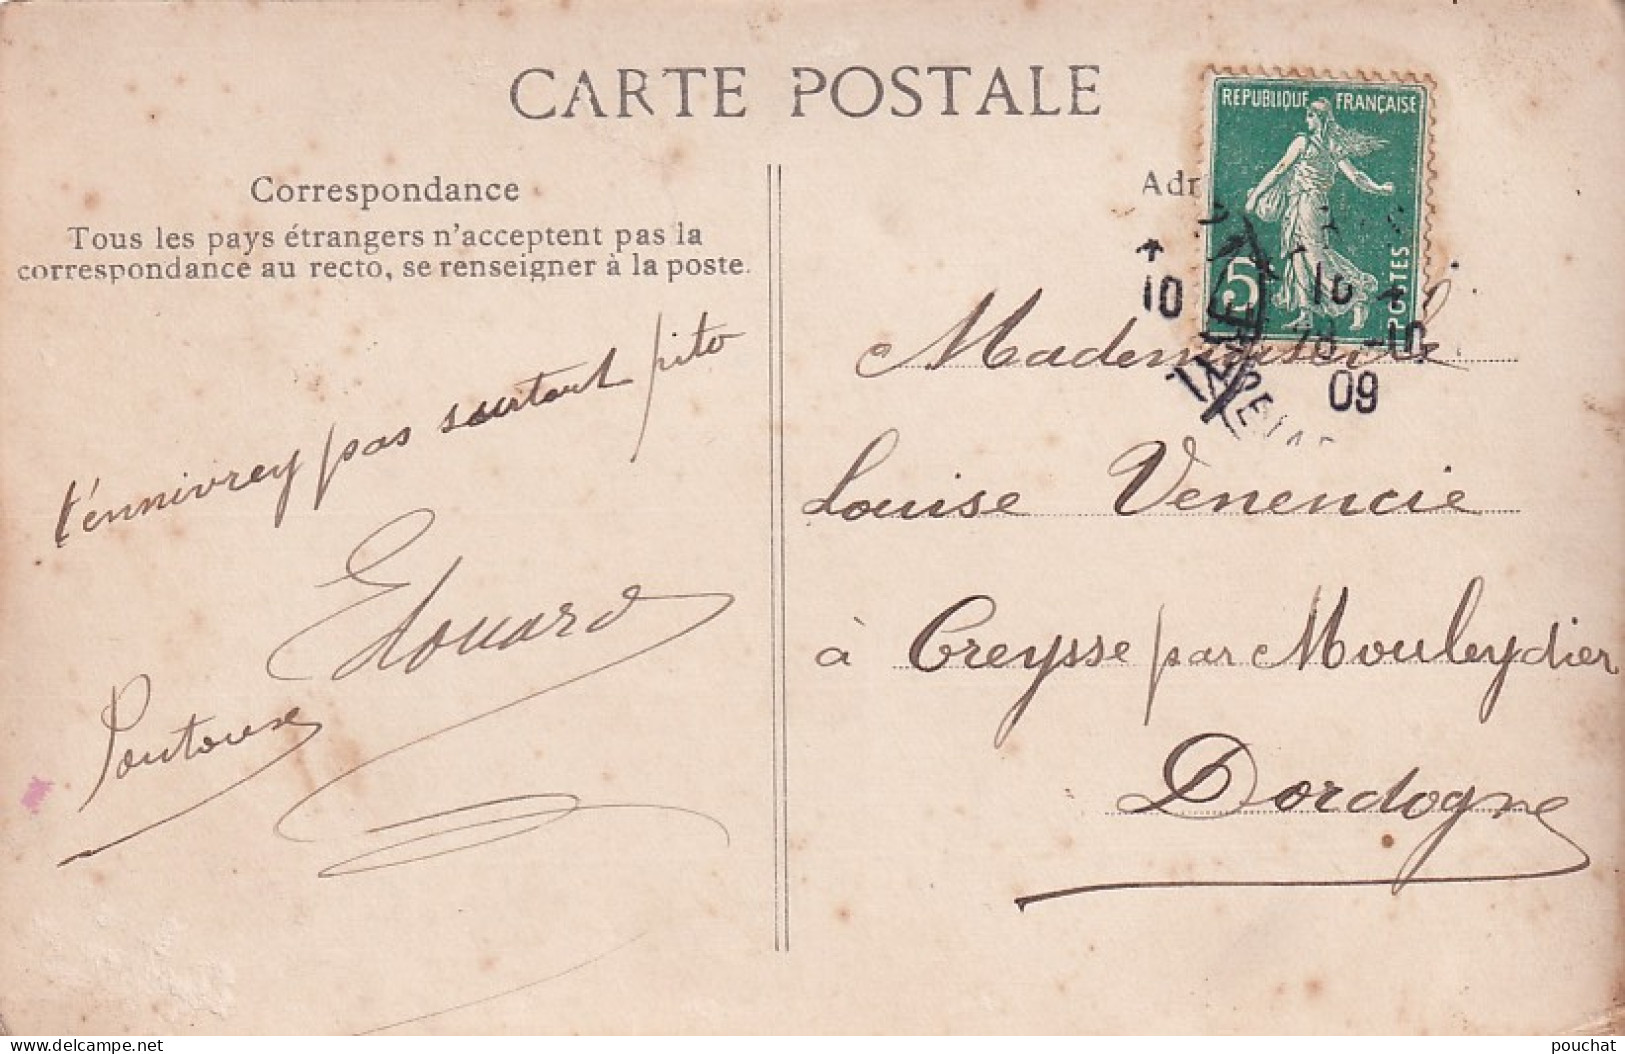 CARTE POSTALE
REPUBLIQUE FRANÇAISE
5
POSTES
Correspondance
Tous les pays étrangers n'acceptent pas la
correspondance au recto, se renseigner à la poste.
Adr
10
10
09
t'ennivrey pas surtout pito
Edouard
Pontoux
Mademoiselle
Louise Venencie
à Creysse par Mouleydier
Dordogne
delcampe.net
pouchat